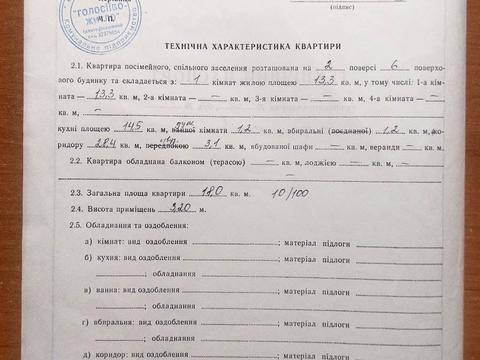 "ГОЛОСІЇВО-
ЖИТЛО"
Комунальне підприємство
М.П.
(підпис)
ТЕХНІЧНА ХАРАКТЕРИСТИКА КВАРТИРИ
2.1. Квартира посімейного, спільного заселення розташована на 2 поверсі 6 поверхо-
вого будинку та складається з: 1 кімнат жилою площею 13,3 кв. м, у тому числі: 1-а кім-
ната — 13,3 кв. м, 2-а кімната — — кв. м, 3-я кімната — — кв. м, 4-а кімната — —
кв. м, —
кухні площею 14,5 кв. м, ванної кімнати 1,2 кв. м, вбиральні (поєднаної) 1,2 кв. м, ко-
ридору 28,4 кв. м, передпокою 3,1 кв. м, вбудованої шафи — кв. м, веранди — кв. м.
2.2. Квартира обладнана балконом (терасою) — кв. м, лоджією — кв. м, —
2.3. Загальна площа квартири 18,0 кв. м. 10/100
2.4. Висота приміщень 3,20 м.
2.5. Обладнання та оздоблення:
а) кімнат: вид оздоблення ; матеріал підлоги
б) кухня: вид оздоблення ; матеріал підлоги
; обладнання
в) ванна: вид оздоблення ; матеріал підлоги
; обладнання
г) вбиральня: вид оздоблення ; матеріал підлоги
; обладнання
д) коридор: вид оздоблення ; матеріал підлоги